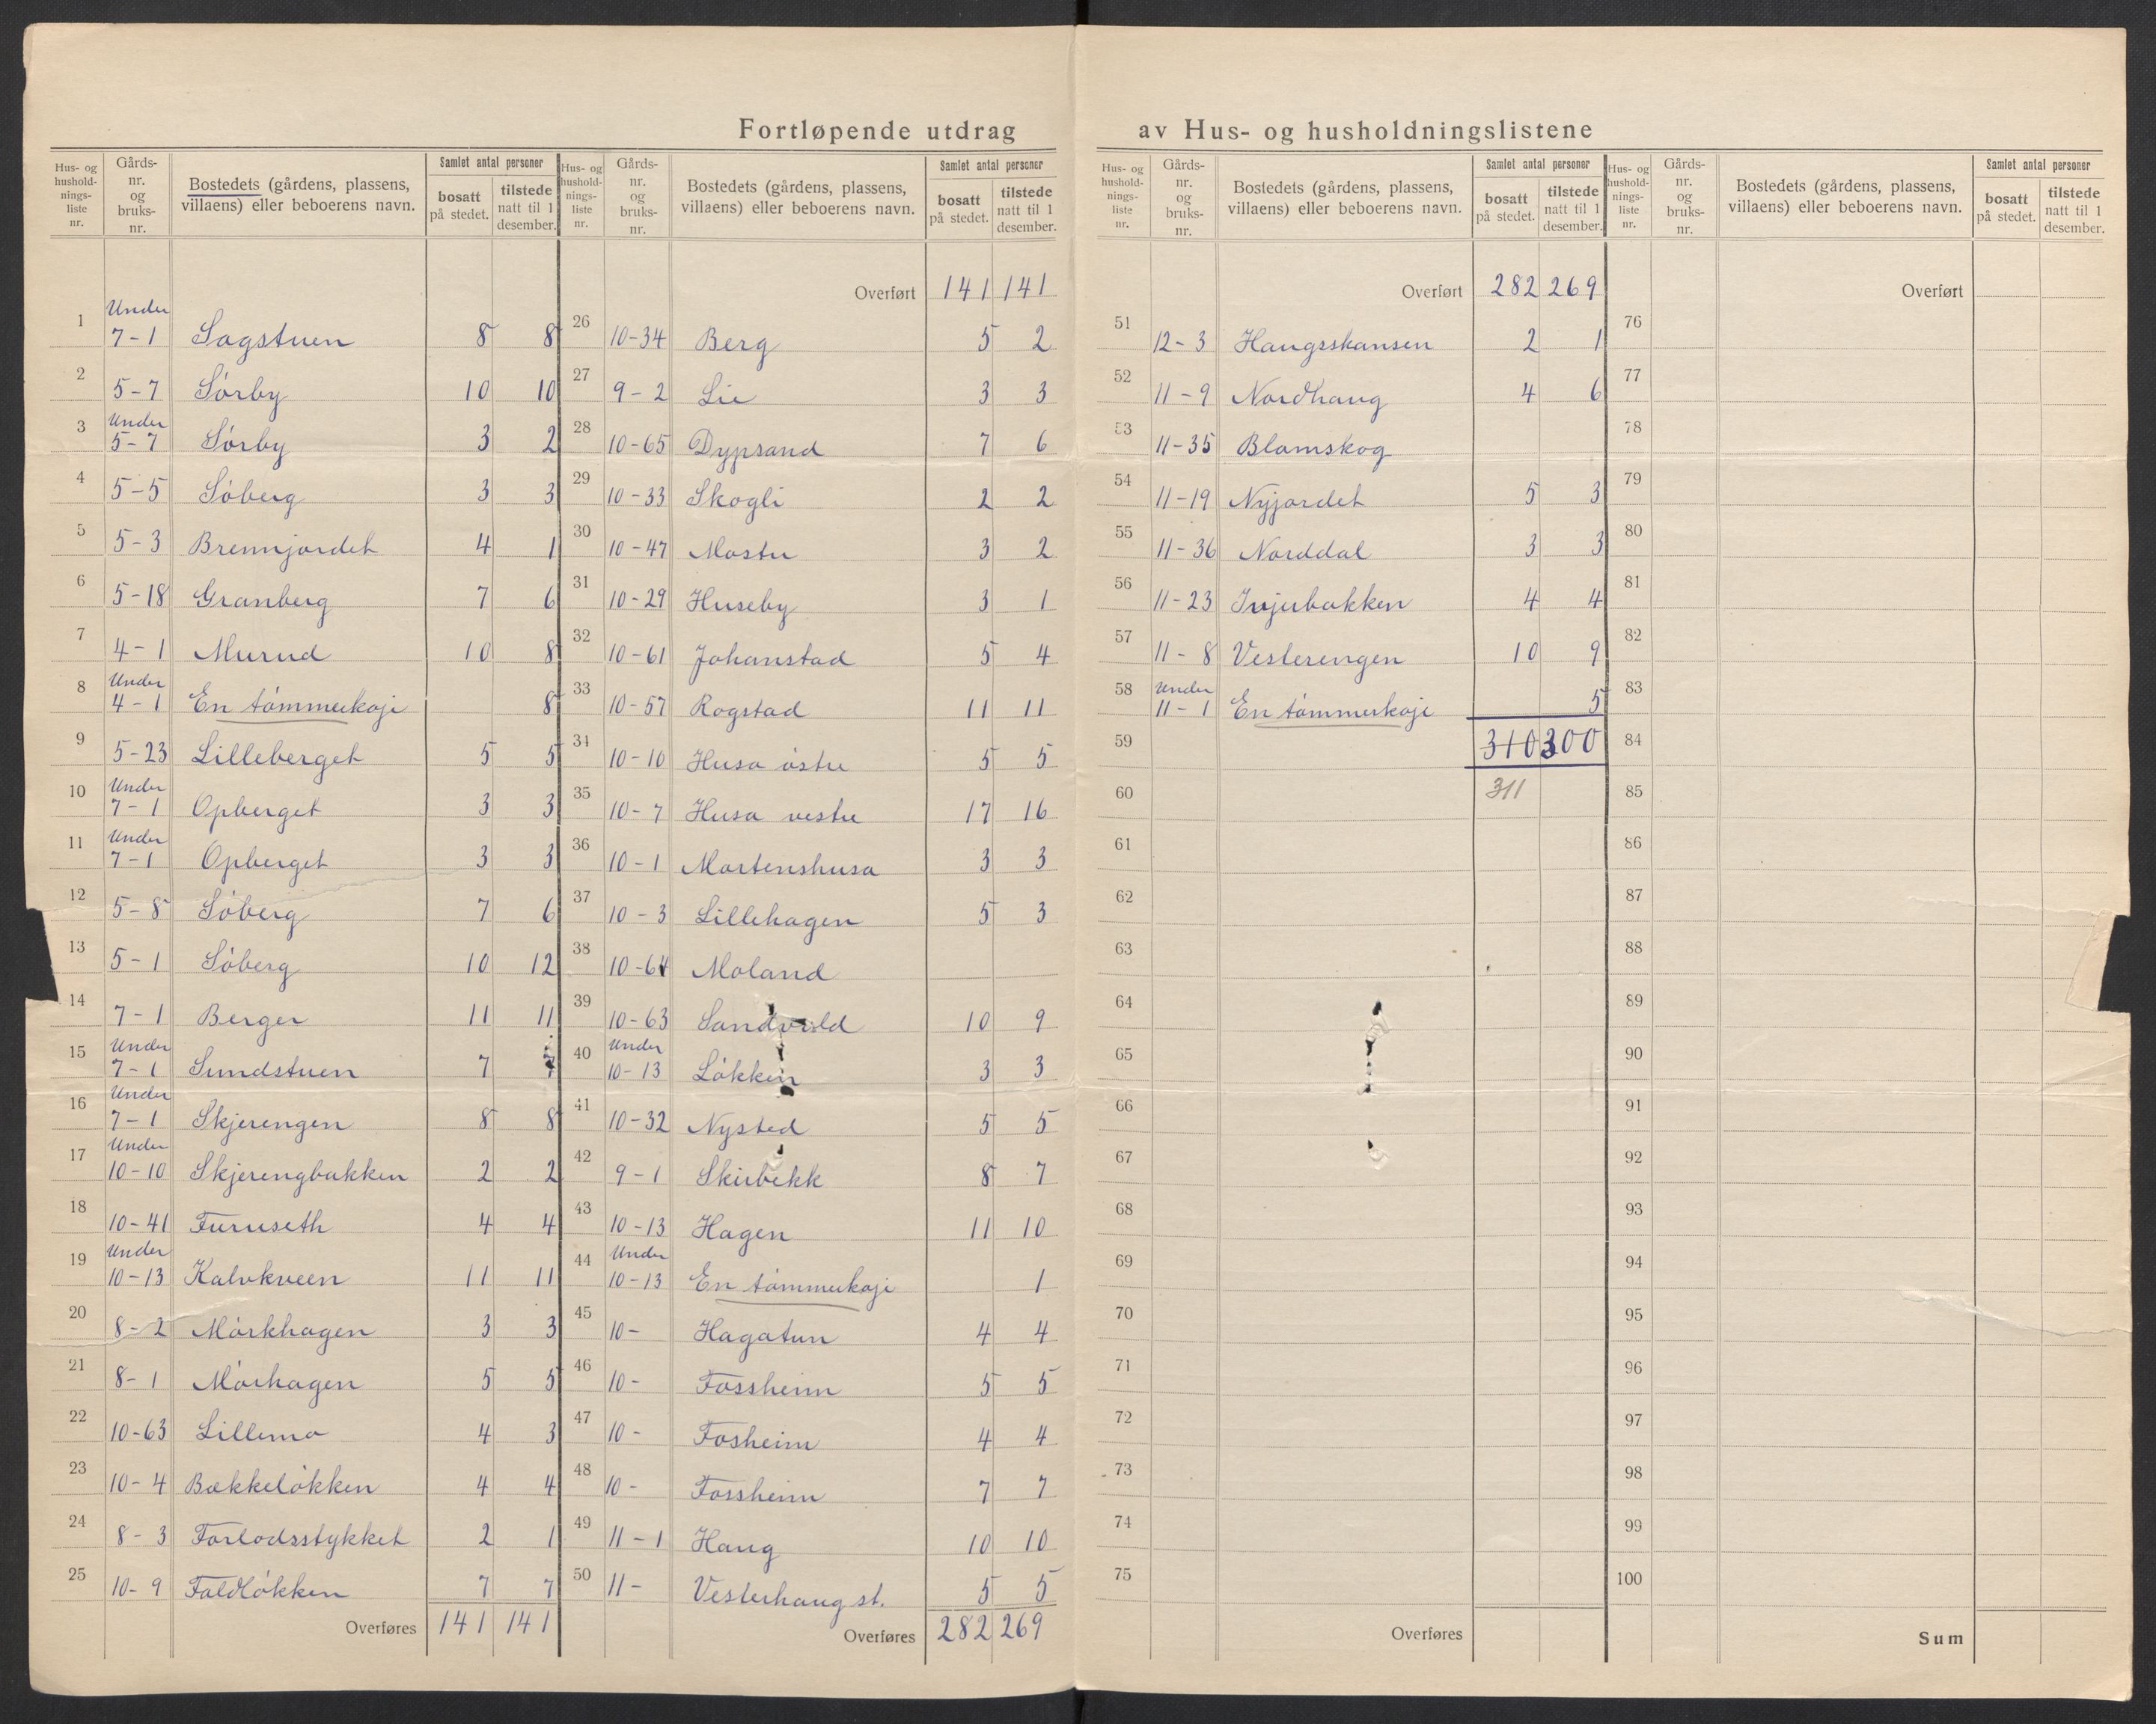 Fortløpende utdrag av Hus- og husholdningslistene
Hus- og husholdningsliste nr. | Gårds-nr. og bruks-nr. | Bostedets (gårdens, plassens, villaens) eller beboerens navn. | Samlet antal personer: bosatt på stedet. | tilstede natt til 1 desember.
1 | Under 7-1 | Sagstuen | 8 | 8
2 | 5-7 | Sørby | 10 | 10
3 | Under 5-7 | Sørby | 3 | 2
4 | 5-5 | Søberg | 3 | 3
5 | 5-3 | Brennjordet | 4 | 1
6 | 5-18 | Granberg | 7 | 6
7 | 4-1 | Murud | 10 | 8
8 | Under 4-1 | En tømmerkoje | | 8
9 | 5-23 | Lilleberget | 5 | 5
10 | Under 7-1 | Opberget | 3 | 3
11 | Under 7-1 | Opberget | 3 | 3
12 | 5-8 | Søberg | 7 | 6
13 | 5-1 | Søberg | 10 | 12
14 | 7-1 | Berger | 11 | 11
15 | Under 7-1 | Sundstuen | 7 | 7
16 | Under 7-1 | Skjerengen | 8 | 8
17 | Under 10-10 | Skjerengbakken | 2 | 2
18 | 10-41 | Furuseth | 4 | 4
19 | Under 10-13 | Kalvkveen | 11 | 11
20 | 8-2 | Mørkhagen | 3 | 3
21 | 8-1 | Mørhagen | 5 | 5
22 | 10-63 | Lillemo | 4 | 3
23 | 10-4 | Bækkeløkken | 4 | 4
24 | 8-3 | Forlodsstykket | 2 | 1
25 | 10-9 | Faldløkken | 7 | 7
Overføres | 141 | 141
Hus- og husholdningsliste nr. | Gårds-nr. og bruks-nr. | Bostedets (gårdens, plassens, villaens) eller beboerens navn. | Samlet antal personer: bosatt på stedet. | tilstede natt til 1 desember.
Overført | 141 | 141
26 | 10-34 | Berg | 5 | 2
27 | 9-2 | Lie | 3 | 3
28 | 10-65 | Dypsand | 7 | 6
29 | 10-33 | Skogli | 2 | 2
30 | 10-47 | Mostu | 3 | 2
31 | 10-29 | Huseby | 3 | 1
32 | 10-61 | Johanstad | 5 | 4
33 | 10-57 | Rogstad | 11 | 11
34 | 10-10 | Husa østre | 5 | 5
35 | 10-7 | Husa vestre | 17 | 16
36 | 10-1 | Mortenshusa | 3 | 3
37 | 10-3 | Lillehagen | 5 | 3
38 | 10-64 | Moland
39 | 10-63 | Sandvold | 10 | 9
40 | Under 10-13 | Løkken | 3 | 3
41 | 10-32 | Nysted | 5 | 5
42 | 9-1 | Skirbekk | 8 | 7
43 | 10-13 | Hagen | 11 | 10
44 | Under 10-13 | En tømmerkoje | | 1
45 | 10- | Hagatun | 4 | 4
46 | 10- | Fossheim | 5 | 5
47 | 10- | Fosheim | 4 | 4
48 | 10- | Fossheim | 7 | 7
49 | 11-1 | Haug | 10 | 10
50 | 11- | Vesterhaug st. | 5 | 5
Overføres | 282 | 269
Hus- og husholdningsliste nr. | Gårds-nr. og bruks-nr. | Bostedets (gårdens, plassens, villaens) eller beboerens navn. | Samlet antal personer: bosatt på stedet. | tilstede natt til 1 desember.
Overført | 282 | 269
51 | 12-3 | Haugsskansen | 2 | 1
52 | 11-9 | Nordhaug | 4 | 6
53 | 11-35 | Blomskog
54 | 11-19 | Nyjordet | 5 | 3
55 | 11-36 | Norddal | 3 | 3
56 | 11-23 | | 4 | 4
57 | 11-8 | Vesterengen | 10 | 9
58 | Under 11-1 | En tømmerkoje | | 5
59 | 310 | 300
60 | 311
61
62
63
64
65
66
67
68
69
70
71
72
73
74
75
Overføres
Hus- og husholdningsliste nr. | Gårds-nr. og bruks-nr. | Bostedets (gårdens, plassens, villaens) eller beboerens navn. | Samlet antal personer: bosatt på stedet. | tilstede natt til 1 desember.
Overført
76
77
78
79
80
81
82
83
84
85
86
87
88
89
90
91
92
93
94
95
96
97
98
99
100
Sum